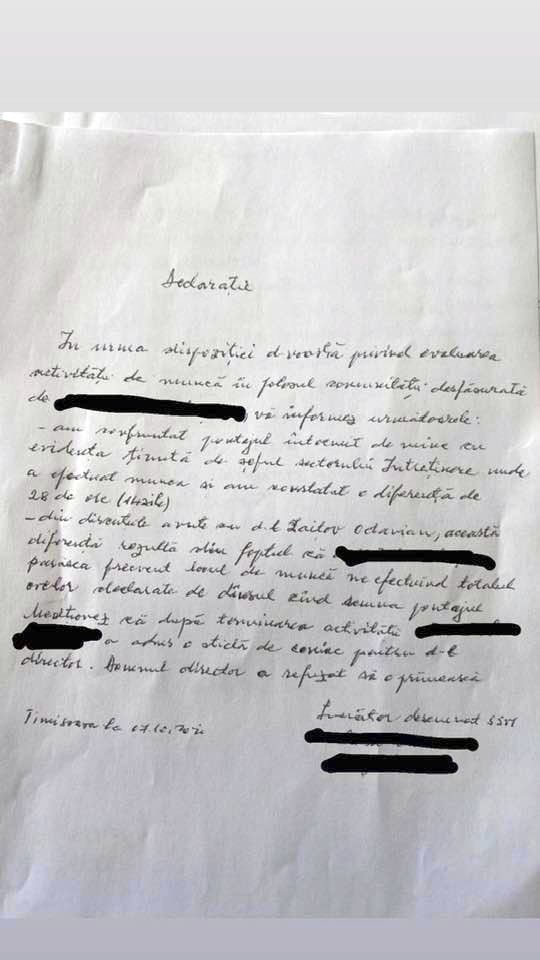 Declarație
În urma dispoziției d-voastră privind evaluarea
activității de muncă în folosul comunității desfășurată
de , vă informez următoarele:
- am confruntat pontajul întocmit de mine cu
evidența ținută de șeful sectorului Întreținere unde
a efectuat munca si am constatat o diferență de
28 de ore (14 zile)
- din discutiile avute cu d-l Zailov Octavian, această
diferență rezultă din faptul că
părăsea frecvent locul de muncă ne efectuînd totalul
orelor declarate de dînsul cînd semna pontajul
Menționez că după terminarea activității
a adus o sticlă de coniac pentru d-l
director. Domnul director a refuzat să o primească
Timisoara la 07.10.
Lucrător desemnat SSM